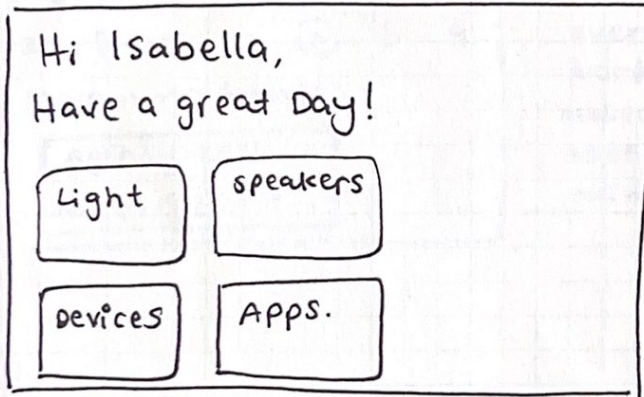 Hi Isabella,
Have a great Day!
Light
speakers
Devices
Apps.